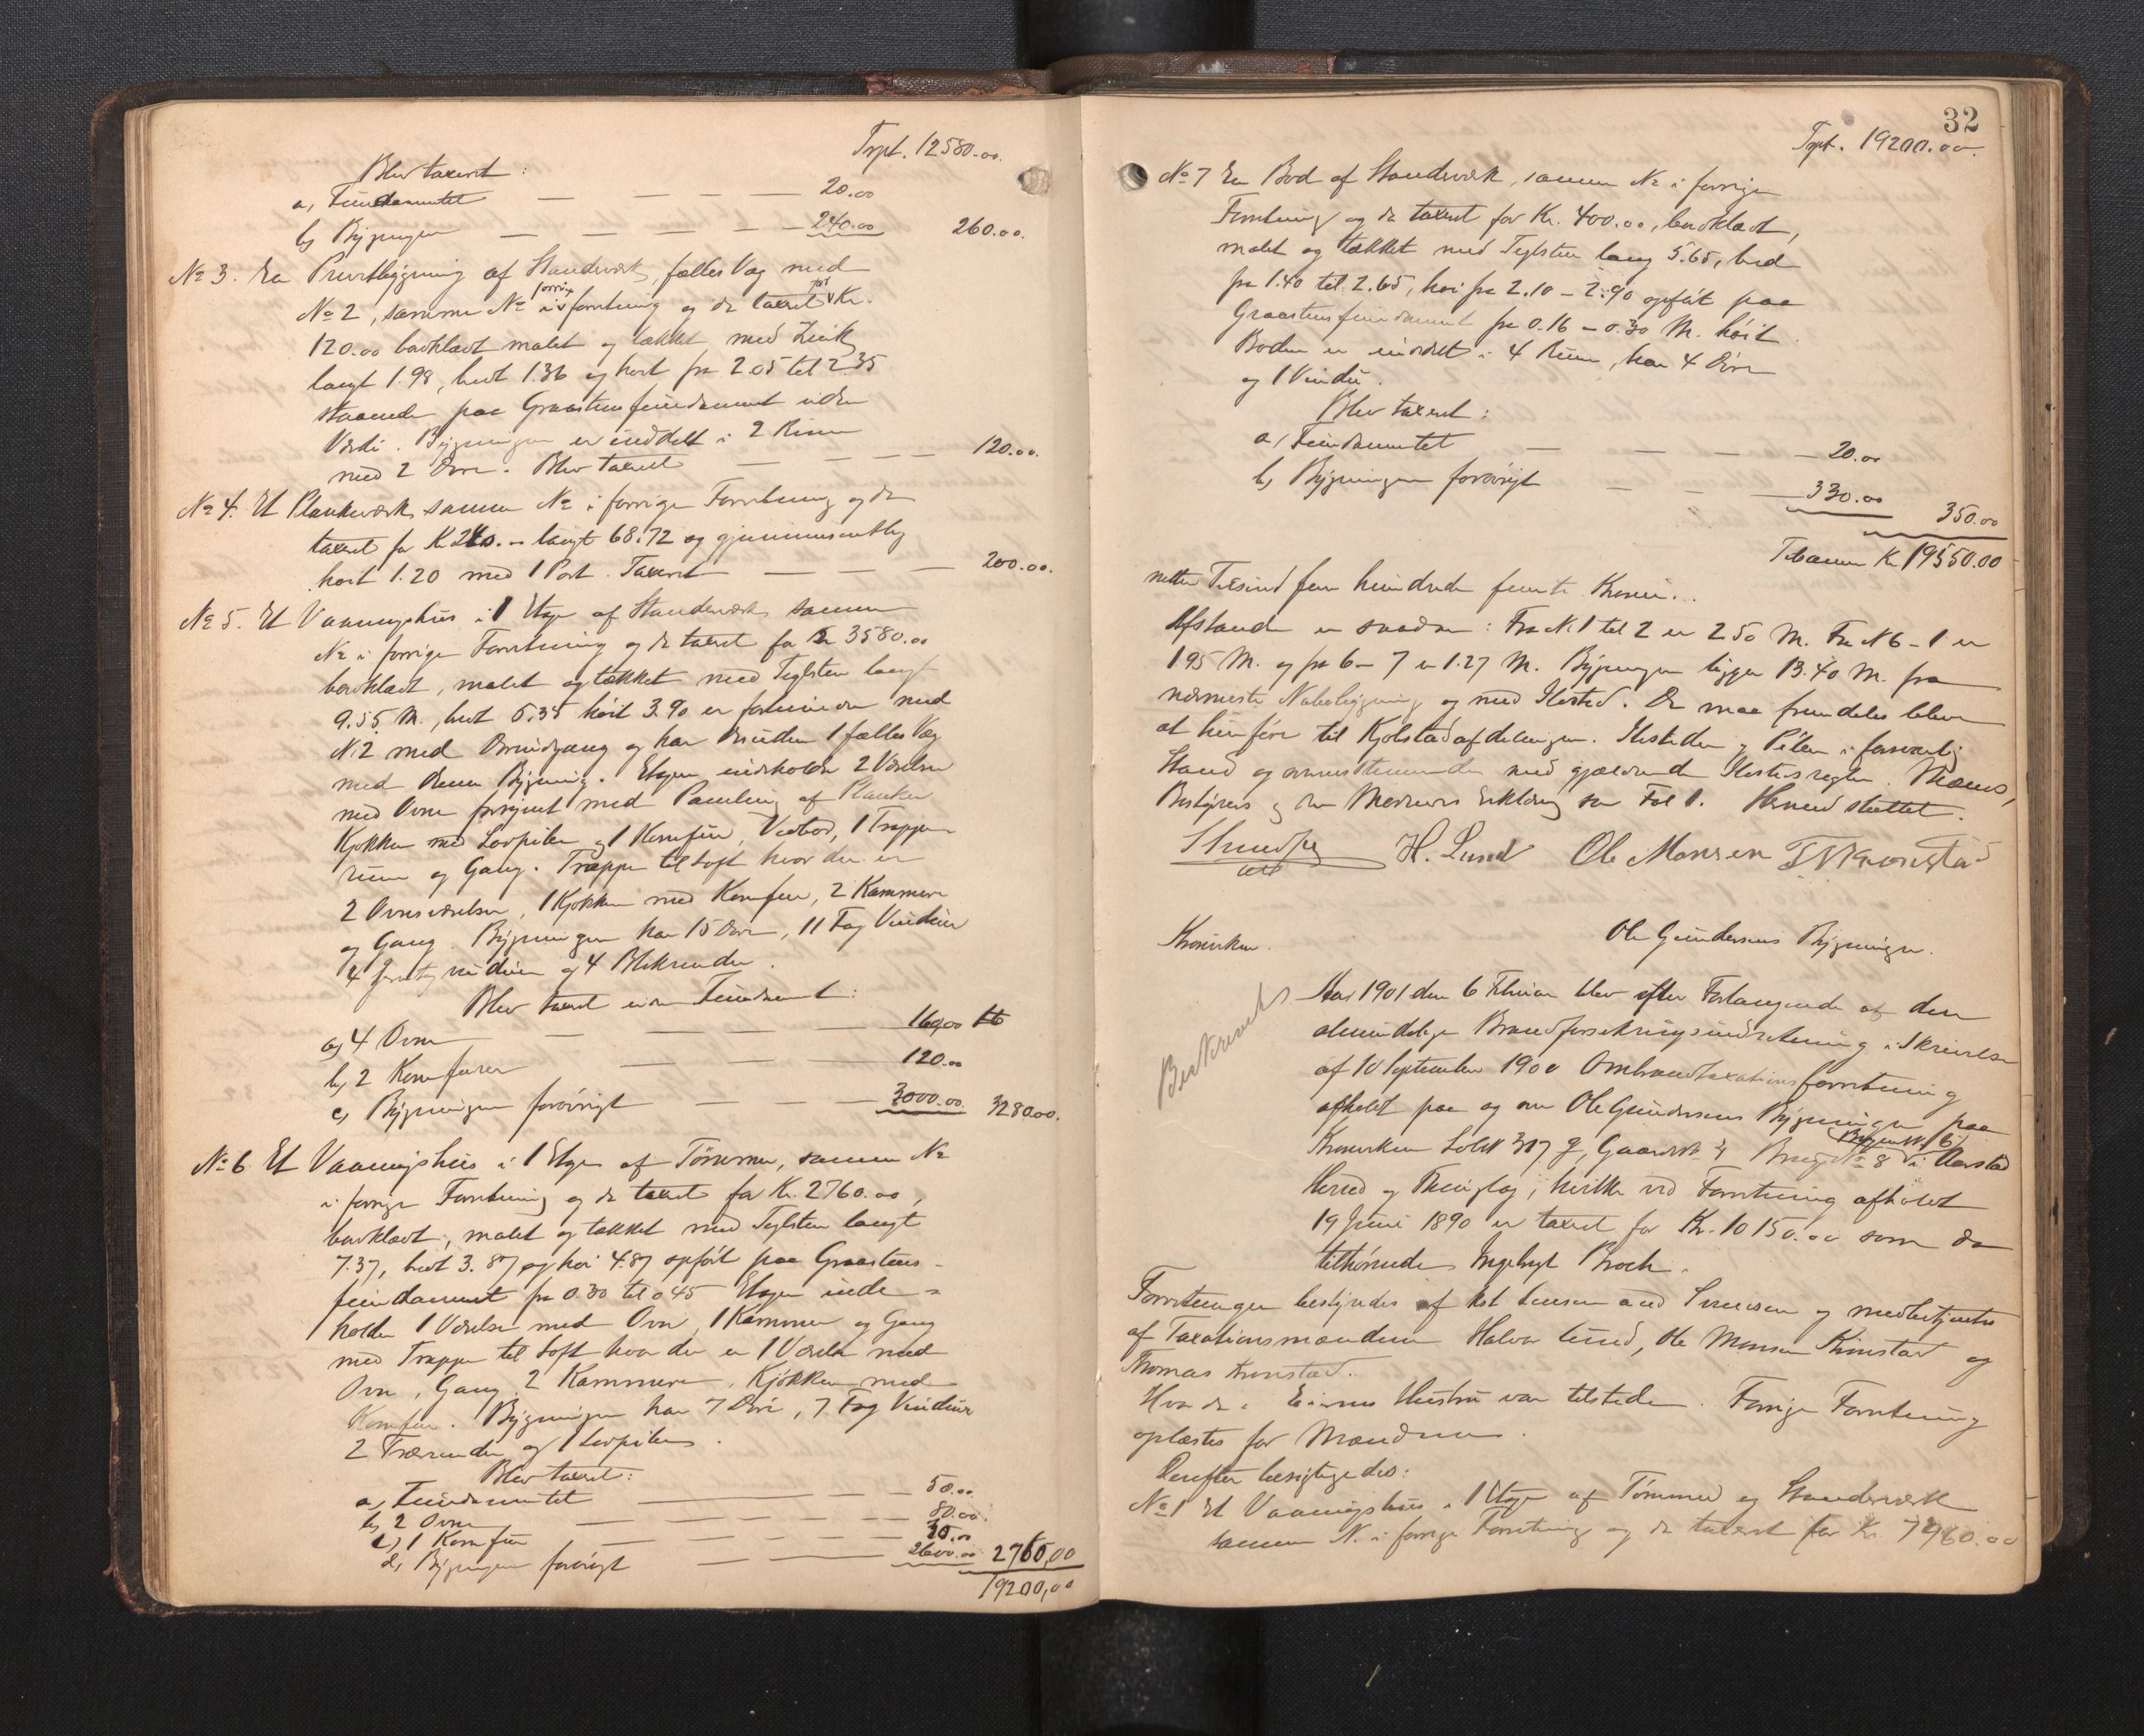 Trpt. 12580.00.
Blev taxeret:
a, Fundamentet — — — 20.00
b, Bygningen — — — — 240.00 260.00.
No 3. En Privetbygning af Standværk, fælles Væg med
No 2, samme No i forrige forretning og da taxeret for Kr.
120.00 bordklædt malet og tækket med Zink
langt 1.98, bredt 1.36 og høit fra 2.05 til 2.35
staaende paa Graastensfundament uden
Værdi. Bygningen er inddelt i 2 Rum
med 2 Døre. Blev taxeret — — — 120.00.
No 4. Et Plankeværk samme No i forrige Forretning og da
taxeret for Kr. langt 68.72 og gjennemsnitlig
høit 1.20 med 1 Port. Taxeret — — — 200.00.
No 5. Et Vaaningshus i 1 Etage af Standværk samme
No i forrige Forretning og da taxeret for Kr 3580.00
bordklædt, malet og tækket med Teglsten langt
9.55 M., bredt 6.35 høit 3.90 er forbunden med
No 2 med Omgang og har desuden 1 fælles Væg
med denne Bygning. Etagen indeholder 2 Værelser
med Ovne forsynet med Paneling af Planker
Kjøkken med Lovpiben og 1 Komfur, Vedbod, 1 Trappe-
rum og Gang. Trappe til Loft hvor der er
2 Ovnsværelser, 1 Kjøkken med Komfur, 2 Kammere
og Gang. Bygningen har 15 Døre, 11 Fag Vinduer
4 vinduer og 4 Blikrender.
Blev taxeret uden Fundament:
a, 4 Ovne — — — 160,00
b, 2 Komfurer — — 120.00
c, Bygningen forøvrigt — — — 3000.00. 3280.00.
No 6 Et Vaaningshus i 1 Etage af Tømmer, samme No
i forrige Forretning og da taxeret for Kr. 2760.00,
bordklædt, malet og tækket med Teglsten langt
7.37, bredt 3.87 og høi 4.87 opført paa Graastens-
fundament fra 0.30 til 0.45 Etagen inde-
holder 1 Værelse med Ovn, 1 Kammer og Gang
med Trappe til Loft hvor der er 1 Værelse med
Ovn, Gang 2 Kammere, Kjøkken med
Komfur. Bygningen har 7 Døre, 7 Fag Vinduer
2 Trærender og 1 Lovpibe.
Blev taxeret:
a, Fundamentet — — 50.00
b, 2 Ovne — — — — 80.00.
c, 1 Komfur — — — 30.00
d, Bygningen forøvrigt — — 2600.00 2760,00
19200,00
32
Trpt. 19200.00.
No 7 En Bod af Standværk, samme No i forrige
Forretning og da taxeret for Kr. 400.00, bordklædt,
malet og tækket med Teglsten lang 5.65, bred
fra 1.40 til 2.65, høi fra 2.10 – 2.90 opført paa
Graastensfundament fra 0.16 – 0.30 M. høit.
Boden er indredet i 4 Rum, har 4 Døre
og 1 Vindu.
Blev taxeret:
a, Fundamentet — — — — 20.00
b, Bygningen forøvrigt — — — 330.00 350.00
Tilsammen Kr 19550.00
nitten Tusind fem hundrede femti Kroner.
Afstanden er saadan: Fra No 1 til 2 er 2 50 M. Fra No 6 – 1 er
1.95 M. og fra 6 – 7 er 1.27 M. Bygningen ligger 13.40 M. fra
nærmeste Nabobygning og med Ildsted. De maa fremdeles blive
at henføre til Kjølstadafdelingen. Ildsteder og Piber i forsvarlig
Stand og overensstemmende med gjældende Ildstedsregler. Mænds,
Bestyrers og Erklæring som Fol 1. Hermed sluttet.
H. Lund Ole Monsen T. Kronstad
Kronviken. Ole Gundersens Bygninger.
Aar 1901 den 6 Februar blev efter Forlangende af den
almindelige Brandforsikringsindretning i Skrivelse
af 10 September 1900 Ombrandtaxationsforretning
afholdt paa og over Ole Gundersens Bygninger paa
Kronviken Løbe No 307 g, Gaards No 4 Brugs No 8 i Aarstad
Herred og Thinglag, hvilke ved Forretning afholdt
19 Juni 1890 er taxeret for Kr. 10150.00 som da
tilhørende Ingebrygt Broch.
Forretningen bestyredes af Lensmand og medbetjentes
af Taxationsmændene Halvor Lund, Ole Monsen Kronstad og
Thomas Kronstad.
Hvorda Eierens Hustru var tilstede. Forrige Forretning
oplæstes for Mændene.
Derefter besigtigedes:
No 1 Et Vaaningshus i 1 Etage af Tømmer og Standværk
samme No. i forrige Forretning og da taxeret for Kr. 7960.00